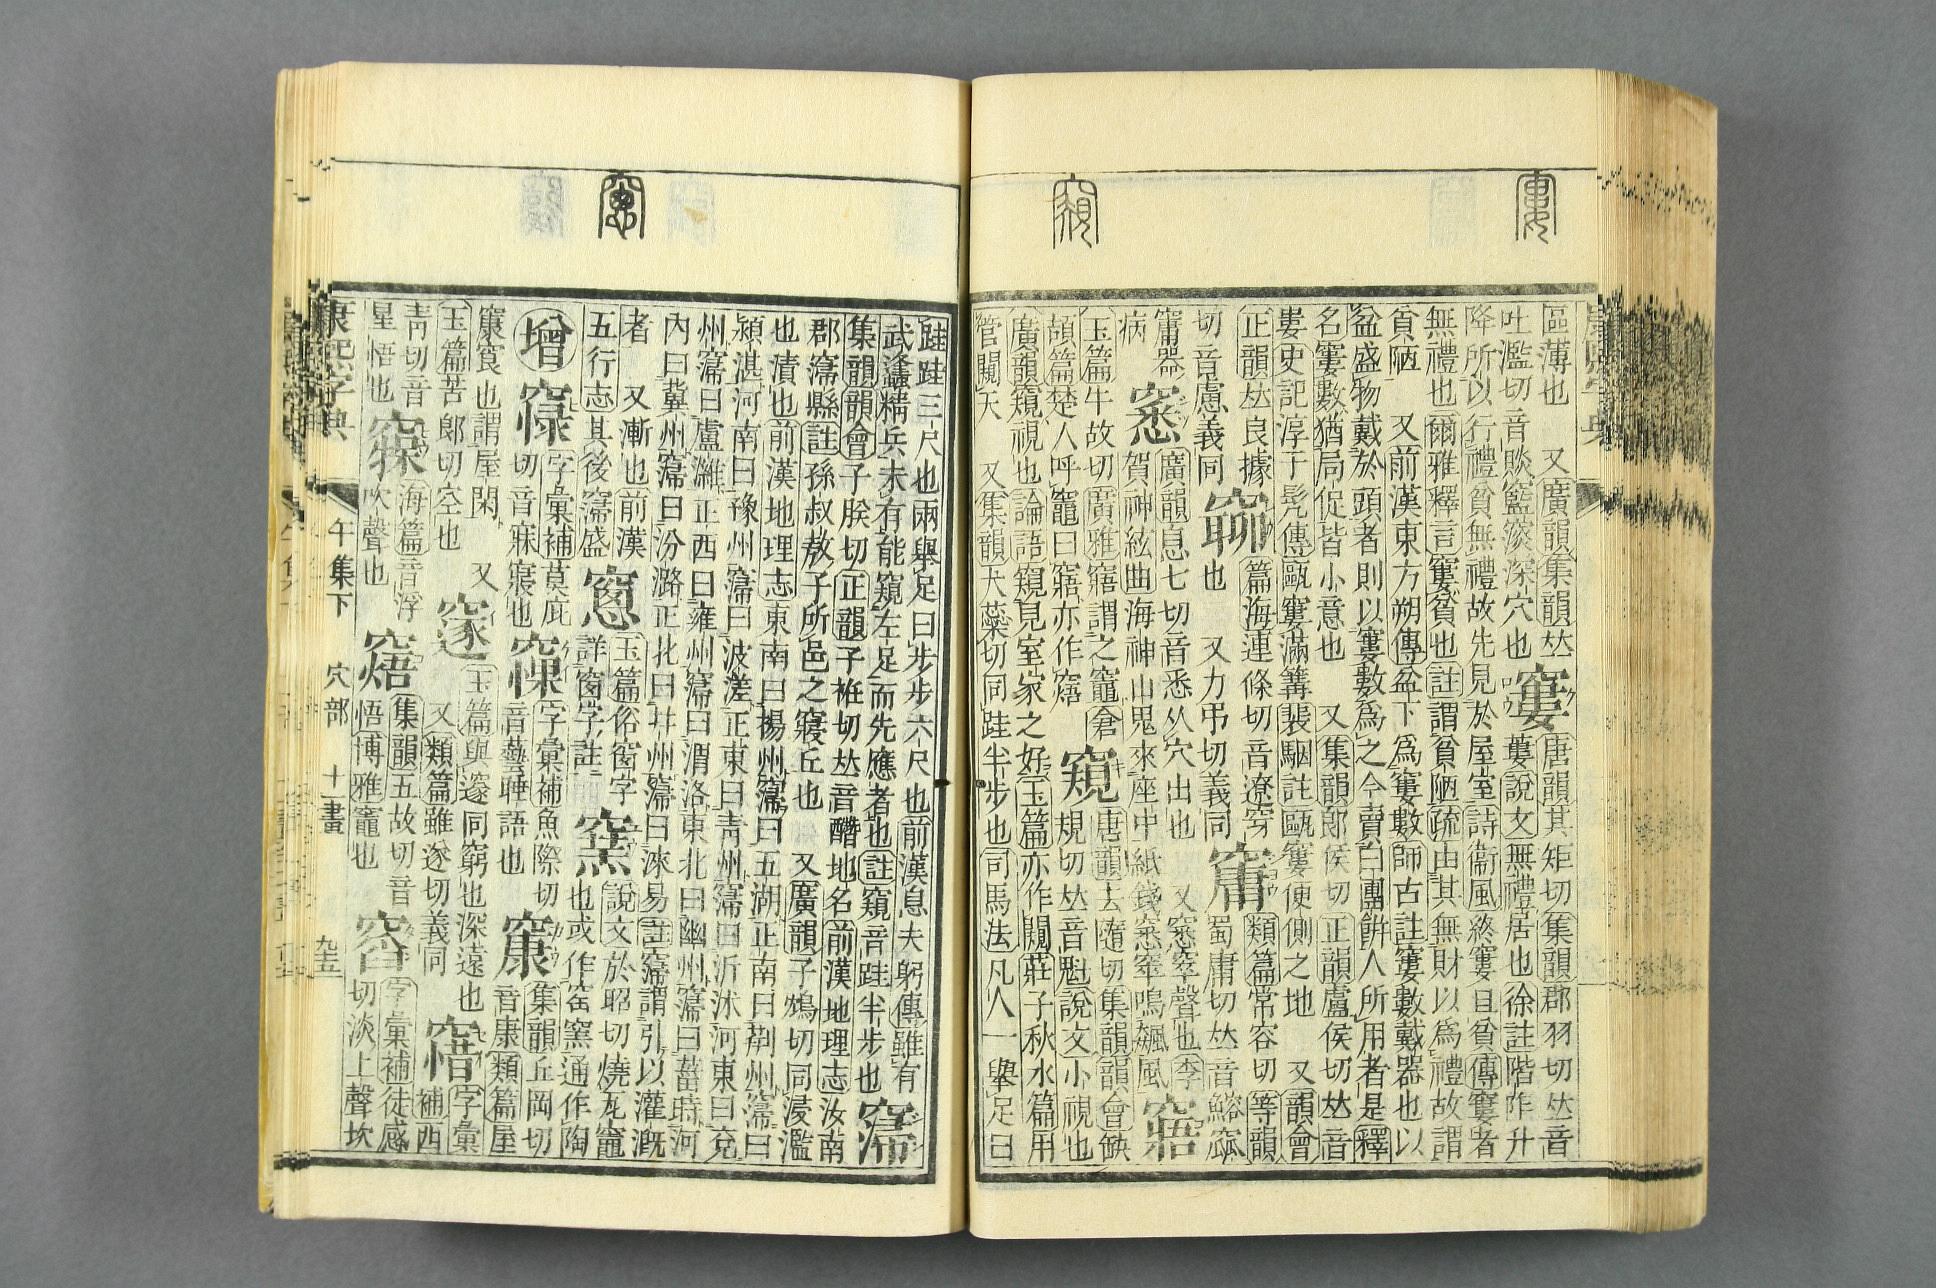 區薄也　又廣韻集韻𠀤
吐濫切音賧籃窞深穴也　窶　唐韻其矩切集韻郡羽切𠀤音
寠說文無禮居也徐註階阼升
降所以行禮貧無禮故先見於屋室詩衞風終窶且貧傳窶者
無禮也爾雅釋言窶貧也註謂貧陋疏由其無財以為禮故謂
貧陋　又前漢東方朔傳盆下為窶數師古註窶數戴器也以
盆盛物戴於頭者則以窶數為之今賣白團餅人所用者是釋
名窶數猶局促皆小意也　又集韻郎侯切正韻盧侯切𠀤音
婁史記淳于髡傳甌窶滿篝裴駰註甌窶便側之地　又韻會
正韻𠀤良據　篇海連條切音遼穿　窬　類篇常容切等韻
切音慮義同　窷　也　又力弔切義同　蜀庸切𠀤音鱅窳
窬器　窸　廣韻息七切音悉从穴出也　又窸窣聲也李
病　賀神絃曲海神山鬼來座中紙錢窸窣鳴飆風　寤
玉篇牛故切廣雅寤謂之竈倉　窺　唐韻去隨切集韻韻會缺
頡篇楚人呼竈曰寤亦作窹　規切𠀤音魁說文小視也
廣韻窺視也論語窺見室家之好玉篇亦作闚莊子秋水篇用
管闚天　又集韻犬蘂切同跬半步也司馬法凡人一舉足曰
跬跬三尺也兩舉足曰步步六尺也前漢息夫躬傳雖有
武蠭精兵未有能窺左足而先應者也註窺音跬半步也　㵫
集韻韻會子朕切正韻子袵切𠀤音醋地名前漢地理志汝南
郡㵫縣註孫叔敖子所邑之寢丘也　又廣韻子鴆切同浸濫
也漬也前漢地理志東南曰揚州㵫曰五湖正南曰荆州㵫曰
潁湛河南曰豫州㵫曰波溠正東曰靑州㵫曰沂沭河東曰兗
州㵫曰盧濰正西曰雍州㵫曰渭洛東北曰幽州㵫曰菑時河
內曰冀州㵫曰汾潞正北曰幷州㵫曰淶易註㵫謂引以灌漑
者　又漸也前漢　窻　玉篇俗窗字　窯　說文於昭切燒瓦竈
五行志其後㵫盛　詳窗字註　也或作窰窯通作陶
增　字彙補莫庇　字彙補魚際切　集韻丘岡切
切音寐寢也　音藝睡語也　音康類篇屋
㝩筤也謂屋閑　又　邃　玉篇與邃同窮也深遠也　字彙
玉篇苦郞切空也　又類篇雖遂切義同　補西
靑切音　海篇音浮　集韻五故切音　字彙補徒感
星悟也　吹聲也　窹　悟博雅竈也　切淡上聲坎
康熙字典　午集下　穴部　十一畫